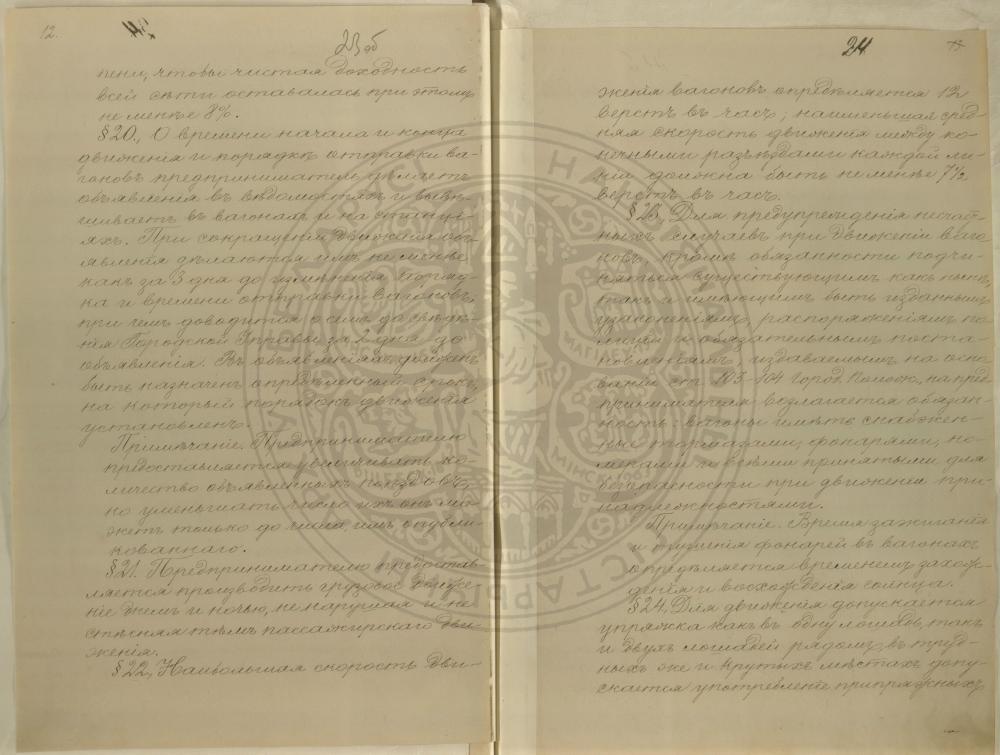 12.
23 об
пени, чтобы чистая доходность
всей сѣти оставалась при этомъ
не менѣе 8%.
§20., О времени начала и конца
движенія и порядкѣ отправки ва-
гоновъ предприниматель дѣлаетъ
объявленія въ вѣдомостяхъ и вывѣ-
шиваетъ въ вагонахъ и на станці-
яхъ. При сокращеніи движенія объ-
явленія дѣлаются имъ не менѣе
какъ за 3 дня до измѣненія поряд-
ка и времени отправки вагоновъ,
при чемъ доводится о семъ до свѣдѣ-
нія Городской Управы за 2 дня до
объявленія. Въ объявленіяхъ долженъ
быть назначенъ опредѣленный срокъ,
на который порядокъ движенія
установленъ.
Примѣчаніе. Предпринимателю
предоставляется увеличивать ко-
личество объявленныхъ поѣздовъ,
но уменьшать число ихъ онъ мо-
жетъ только до числа, имъ опубли-
кованнаго.
§21. Предпринимателю предостав-
ляется производить грузовое движе-
ніе днемъ и ночью, не нарушая и не
стѣсняя тѣмъ пассажирскаго дви-
женія.
§22., Наибольшая скорость дви-
24
женія вагоновъ опредѣляется 12
верстъ въ часъ; наименьшая сред-
няя скорость движенія между ко-
нечными разъѣздами каждой ли-
ніи должна быть не менѣе 7½
верстъ въ часъ.
§23., Для предупрежденія несчаст-
ныхъ случаевъ при движеніи ваго-
новъ, кромѣ обязанности подчи-
няться существующимъ какъ нынѣ,
такъ и имѣющимъ быть изданнымъ
узаконеніямъ, распоряженіямъ по-
лиціи и обязательнымъ поста-
новленіямъ, издаваемымъ на осно-
ваніи ст. 103-104 Город. Полож., на пред-
принимателя возлагается обязан-
ность: вагоны имѣть снабжен-
ные тормазами, фонарями, но-
мерами и всѣми принятыми для
безопасности при движеніи при-
надлежностями.
Примѣчаніе. Время зажиганія
и тушенія фонарей въ вагонахъ
опредѣляется временемъ захож-
денія и восхожденія солнца.
§24. Для движенія допускается
упряжка какъ въ одну лошадь, такъ
и двухъ лошадей рядомъ, въ труд-
ныхъ же и крутыхъ мѣстахъ допу-
скается употребленіе припряжныхъ